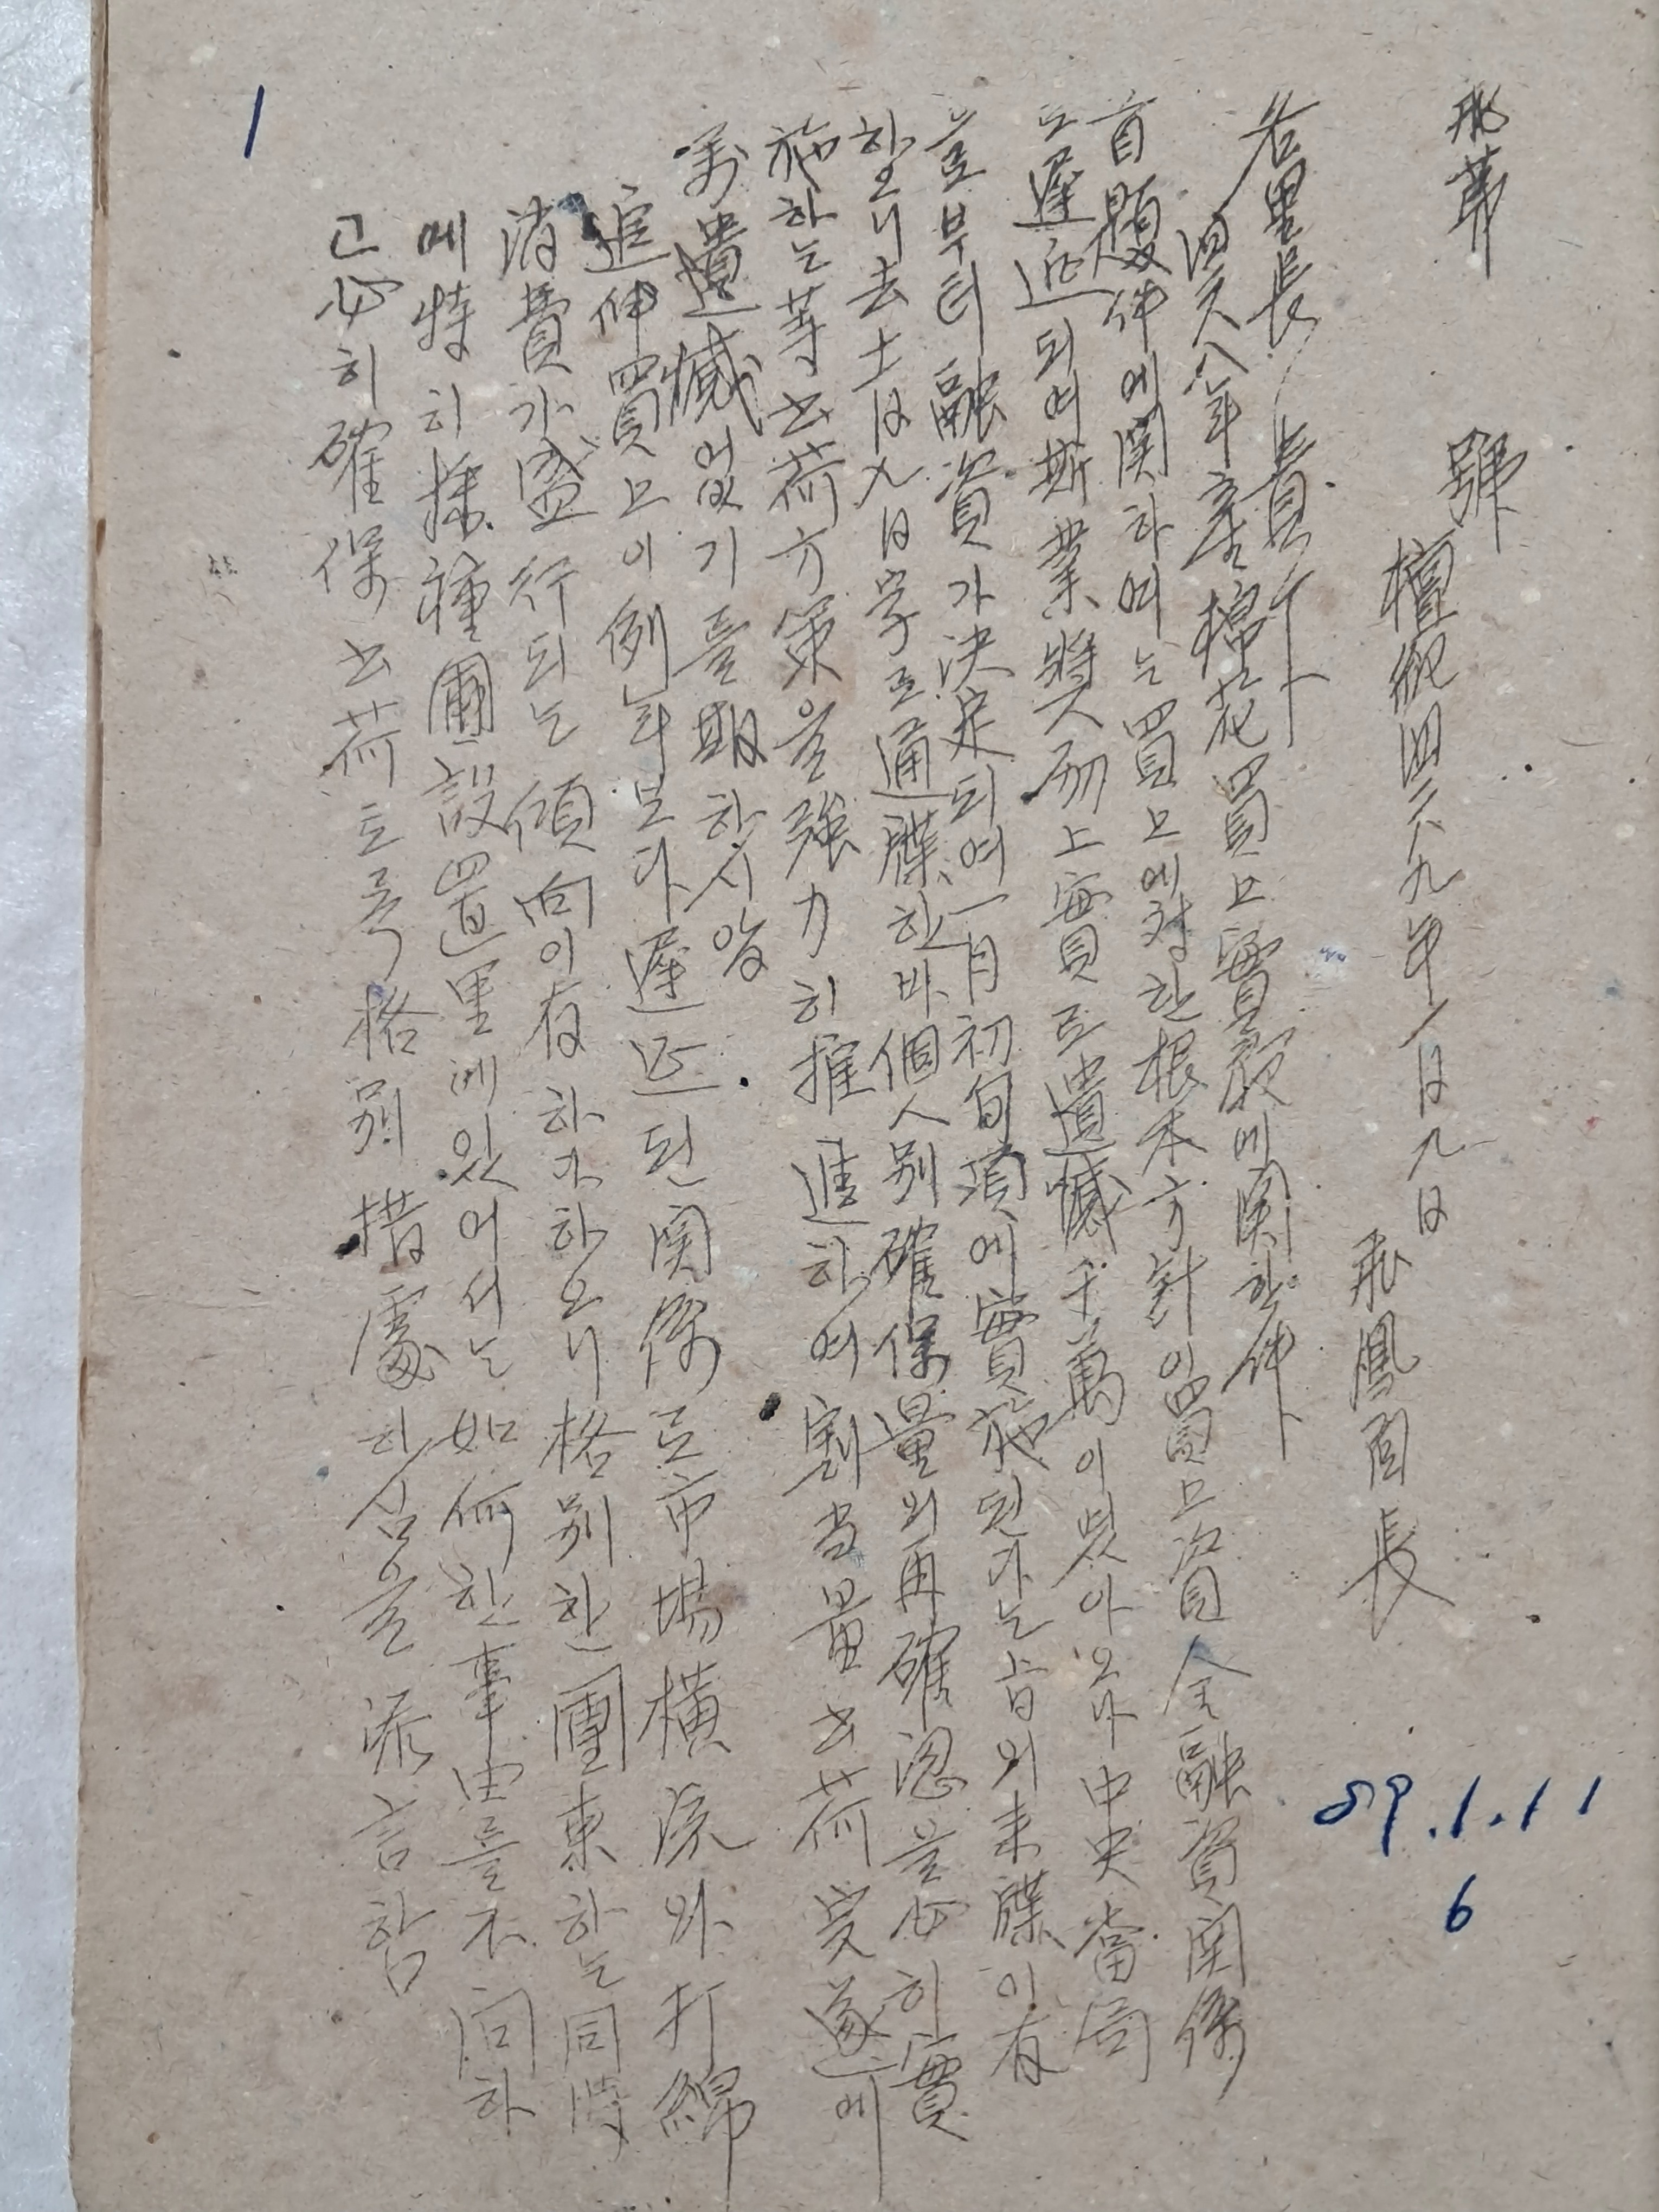 飛第 號
檀紀四二八九年一月九日 飛鳳面長
各里長 貴下
四二八八年産棉花買上實敢에関한件
首題件에関하여는買上에對한根本方針인買上資金融資関係
로遲延되여斯業奬励上實로遺憾千萬이였아오나中央當局
으로부터融資가決定되여一月初旬頃에實施된다는上의来牒이有
하오니去十二月九日字로通牒한바個人別確保量의再確認을必히實
施하는等出荷方策을強力히推進하여割当量出荷完遂에
万遺憾이없기를期하시앞
追伸 買上이例年보다遲延된関係로市場橫流와打綿
消費가盛行되는傾向이有하가하오니格別한團束하는同時
에特히採種圃設置里에있어서는如何한事由를不問하
고必히確保出荷토록格別措處하심을添言함
89.1.11
6
1